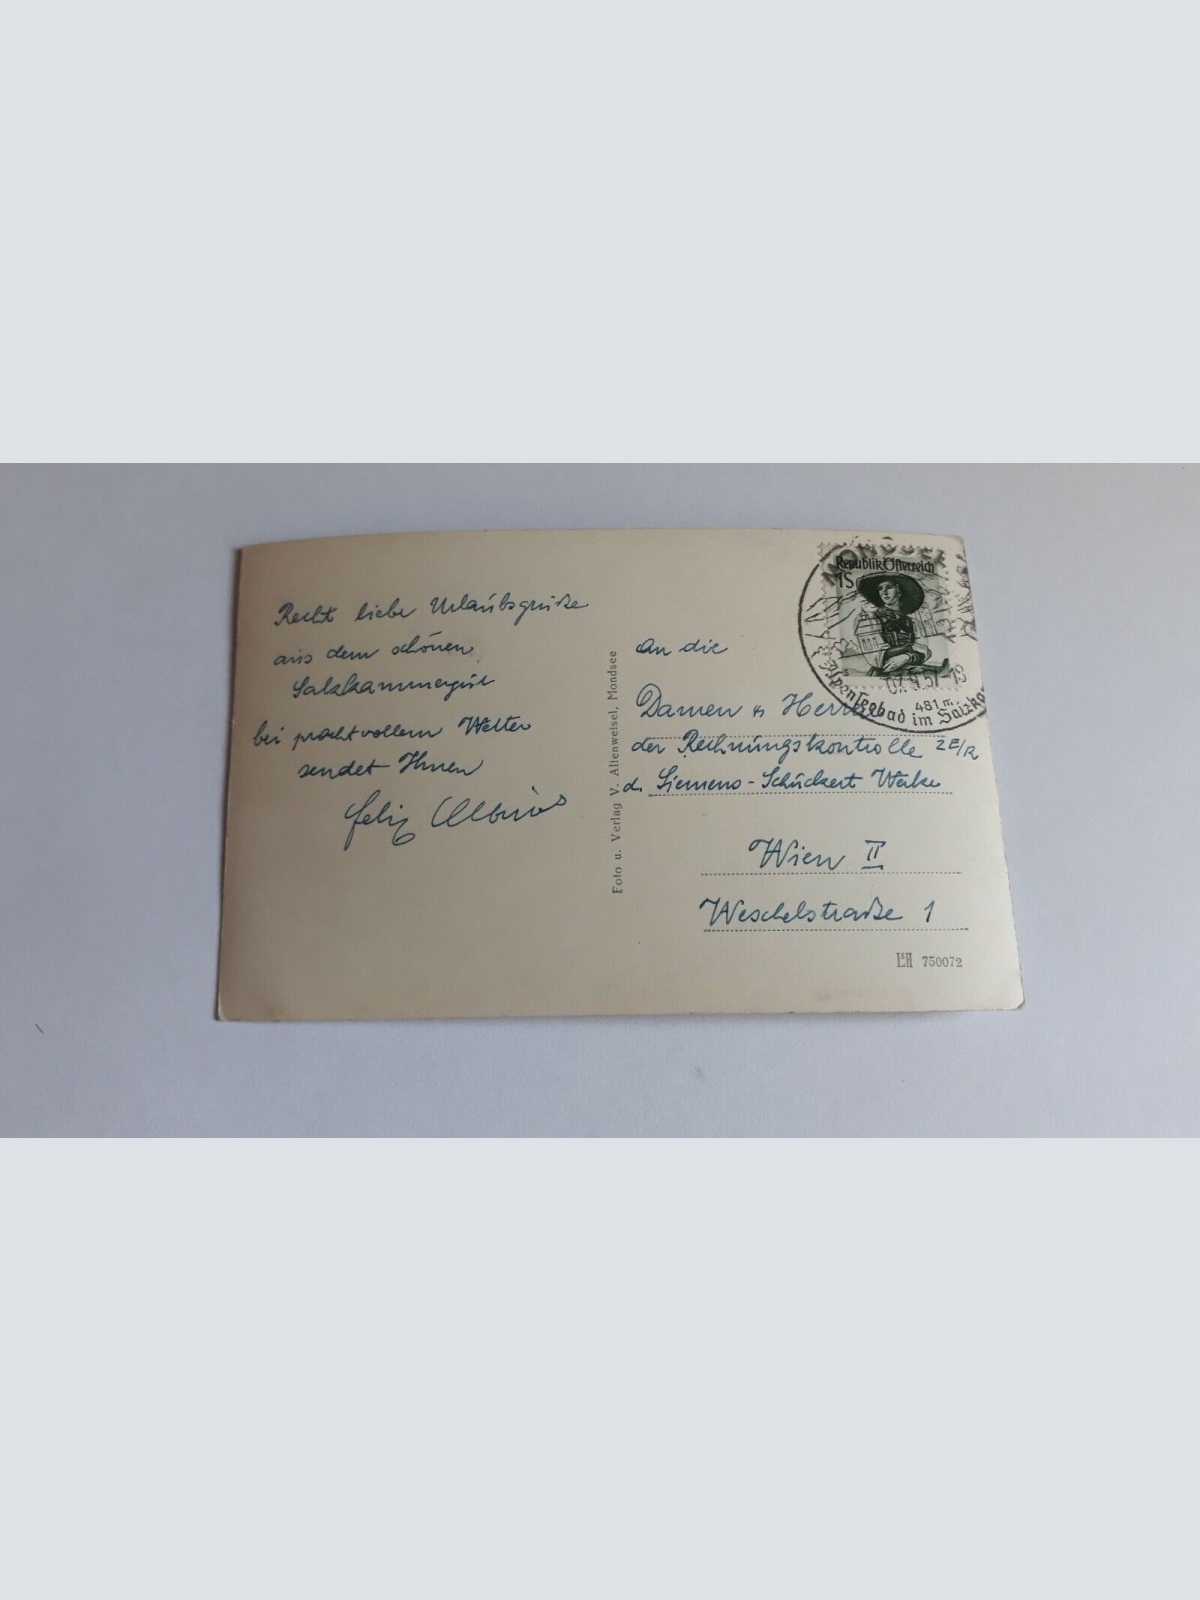 Recht liebe Urlaubsgrüße
aus dem schönen
Salzkammergut
bei prachtvollem Wetter
sendet Ihnen
Felix
Foto u. Verlag V. Altenweisel, Mondsee
MONDSEE
Republik Österreich
1S
9.57-18
481 m.
Alpenseebad im Salzka
An die
Damen u Herren
der Rechnungskontrolle ZE/R
d. Siemens-Schuckert Werke
Wien II
Weschelstraße 1
L&H 750072